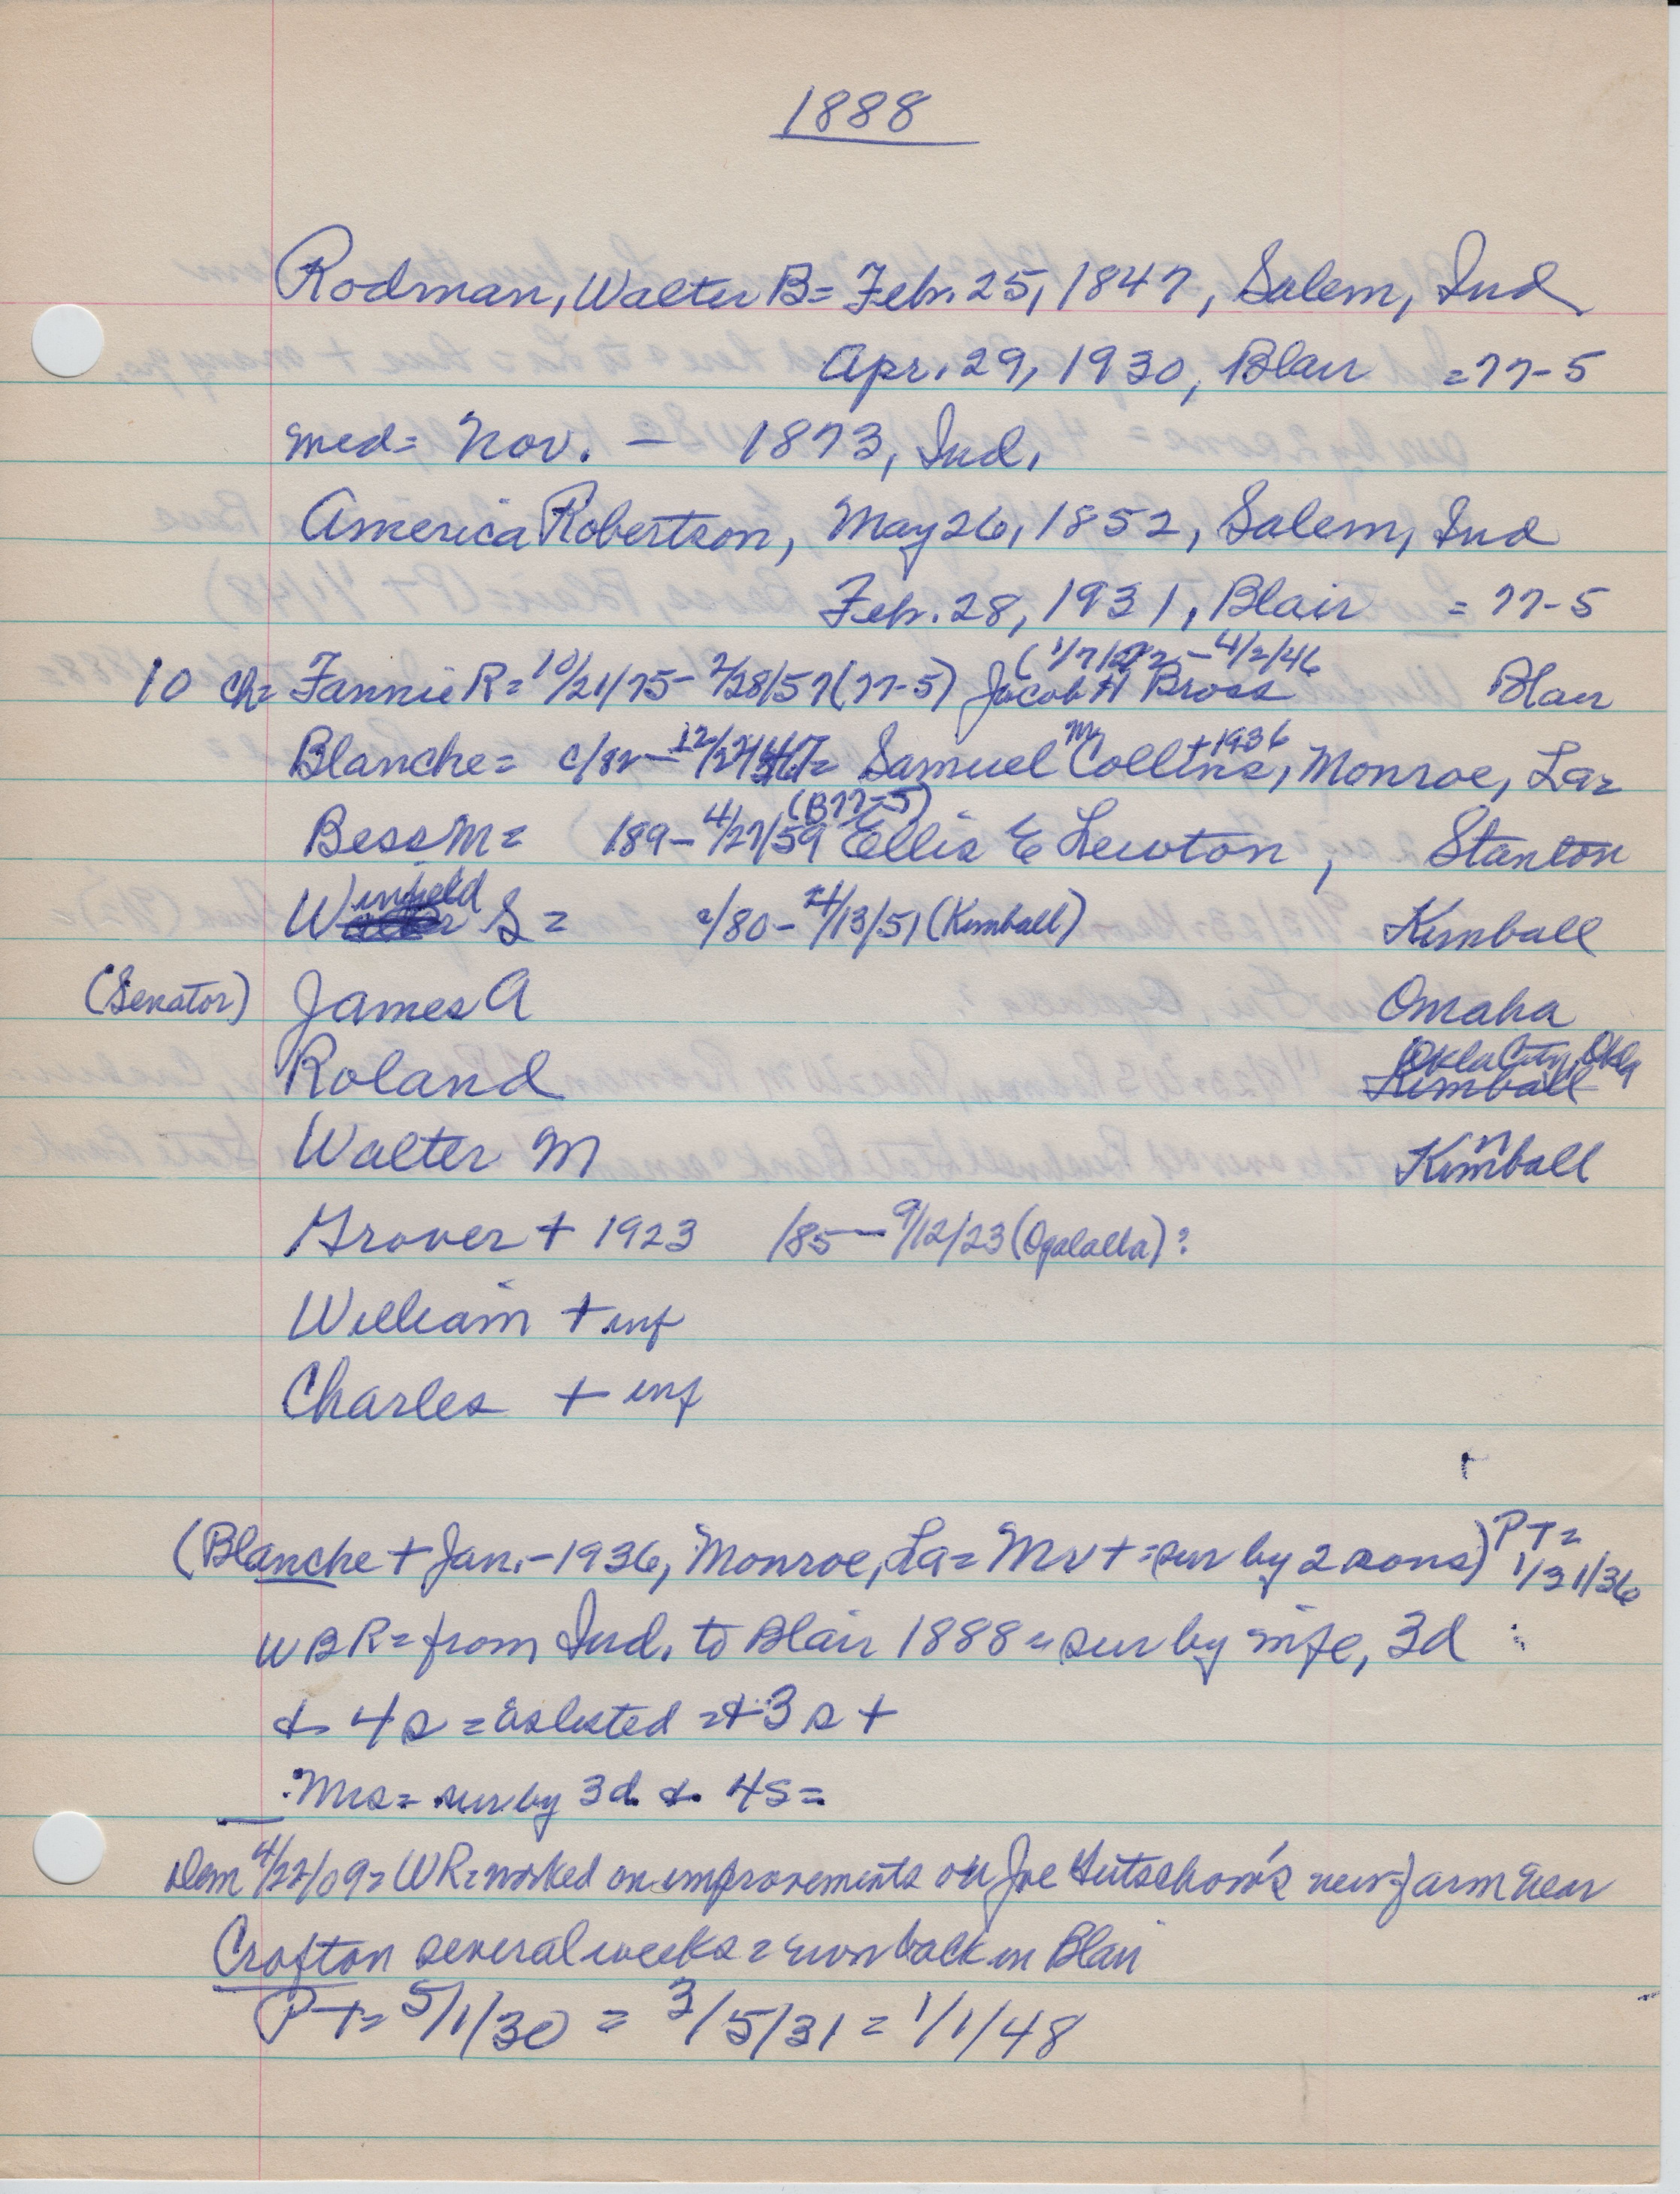 1888
Rodman, Walter B = Feb. 25, 1847, Salem, Ind
Apr. 29, 1930, Blair = 77-5
med = Nov. — 1873, Ind.
America Robertson, May 26, 1852, Salem, Ind
Feb. 28, 1931, Blair = 77-5
10 ch = Fannie R = 10/21/75 - 2/28/57 (77-5) Jacob H Bross - 4/2/46 Blair
Blanche = c/82 - Samuel McCollins, + 1936 Monroe, La =
Bess M = 189 - 4/27/59 (B 77-5) Ellis E Lewton, Stanton
Winfield S = c/80 - 4/13/51 (Kimball) Kimball
(Senator) James A Omaha
Roland Okla City, Okla Kimball
Walter M Kimball
Grover + 1923 /85 - 9/12/23 (Ogalalla)?
William + inf
Charles + inf
(Blanche + Jan. - 1936, Monroe, La = Mr + = sur by 2 sons) PT = 1/31/36
WBR = from Ind. to Blair 1888 = sur by wife, 3d
& 4s = as listed = + 3s +
Mrs = sur by 3d & 4s =
Dem 4/22/09 = WR = worked on improvements on Joe Gutschow's new farm near
Crofton several weeks = now back in Blair
PT = 5/1/30 = 3/5/31 = 1/1/48